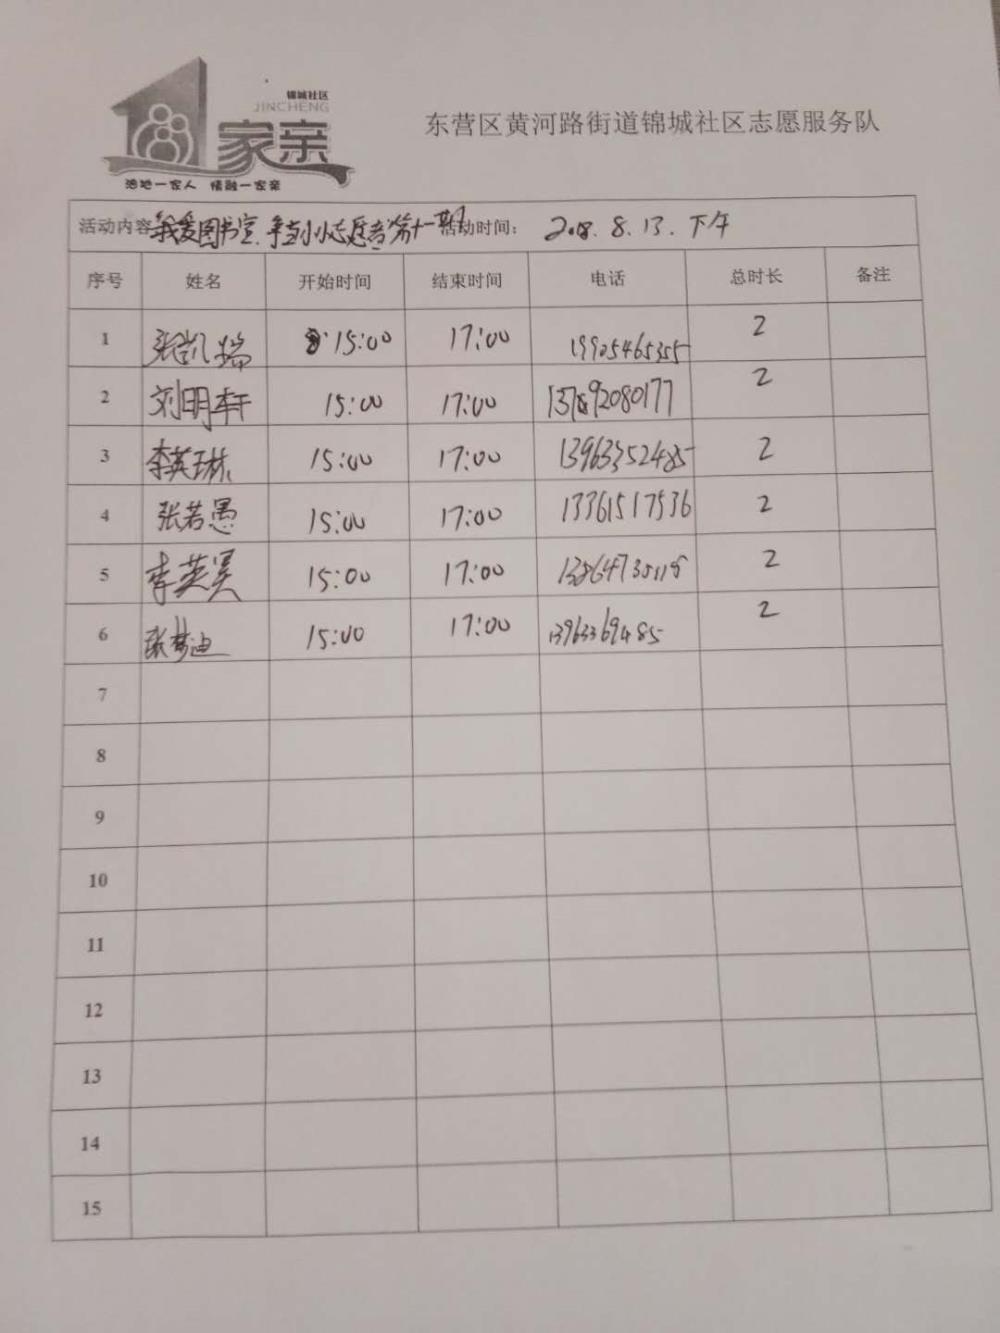 锦城社区
JINCHENG
家亲
油地一家人 情融一家亲
东营区黄河路街道锦城社区志愿服务队
活动内容 我爱图书室.争当小小志愿者第十一期 活动时间： 2018.8.13.下午
序号 姓名 开始时间 结束时间 电话 总时长 备注
1 张凯瑞 15:00 17:00 2
2 刘明轩 15:00 17:00 2
3 李英琳 15:00 17:00 13963352485 2
4 张若愚 15:00 17:00 13361517536 2
5 李英昊 15:00 17:00 2
6 张梦迪 15:00 17:00 13963369485 2
7
8
9
10
11
12
13
14
15